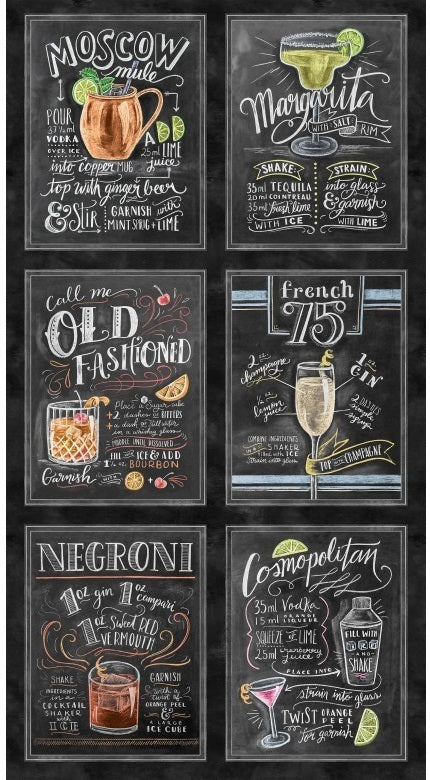 MOSCOW
mule
POUR
37 ½ ml
VODKA
OVER ICE
A
25ml LIME
juice
into copper MUG
top with ginger beer
& Stir
GARNISH with
MINT SPRIG + LIME
Margarita
WITH SALT RIM
SHAKE:
35ml TEQUILA
20ml COINTREAU
35ml fresh lime
WITH ICE
STRAIN:
into glass
& garnish
WITH LIME
call me
OLD
FASHIONED
Place a sugar cube
+ 2 dashes of BITTERS
+ a dash of
in a whiskey glass
MUDDLE UNTIL DISSOLVED
FILL with ICE & ADD
1 ½ oz. BOURBON
Garnish WITH +
french
75
2 oz.
champagne
1 oz.
GIN
½ oz.
lemon
juice
2 DASHES
simple
syrup
COMBINE INGREDIENTS
in a SHAKER
filled with ICE
Strain into glass
TOP with CHAMPAGNE
NEGRONI
1 oz gin 1 oz campari
1 oz Sweet RED
VERMOUTH
SHAKE
INGREDIENTS
in a
COCKTAIL
SHAKER
with
ICE
GARNISH
with a
twist of
ORANGE PEEL
&
A LARGE
ICE CUBE
Cosmopolitan
35ml Vodka
15ml ORANGE
LIQUEUR
SQUEEZE of LIME
25ml cranberry
juice
PLACE INTO
FILL WITH
ICE
AND
SHAKE
strain into glass
TWIST ORANGE
PEEL
for garnish